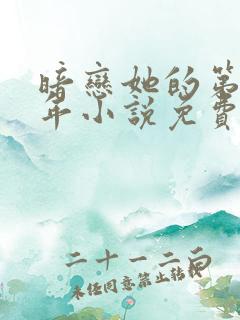 暗戀她的第
年小說免費
二十一二向
未经同意禁止转载